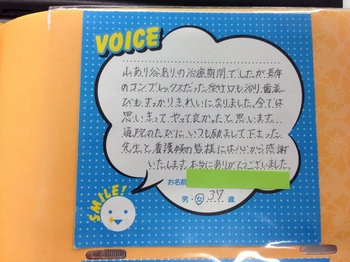 VOICE
山あり谷ありの治療期間でしたが、長年
のコンプレックスだった受け口も治り、歯並
びもすっかりきれいになりました。今では
思いきって、やって良かったと思います…
通院のたびに、いつも励まして下さった
先生と、看護婦の皆様には心から感謝
いたします。本当にありがとうございました。
お名前
男・女 37 歳
SMILE!